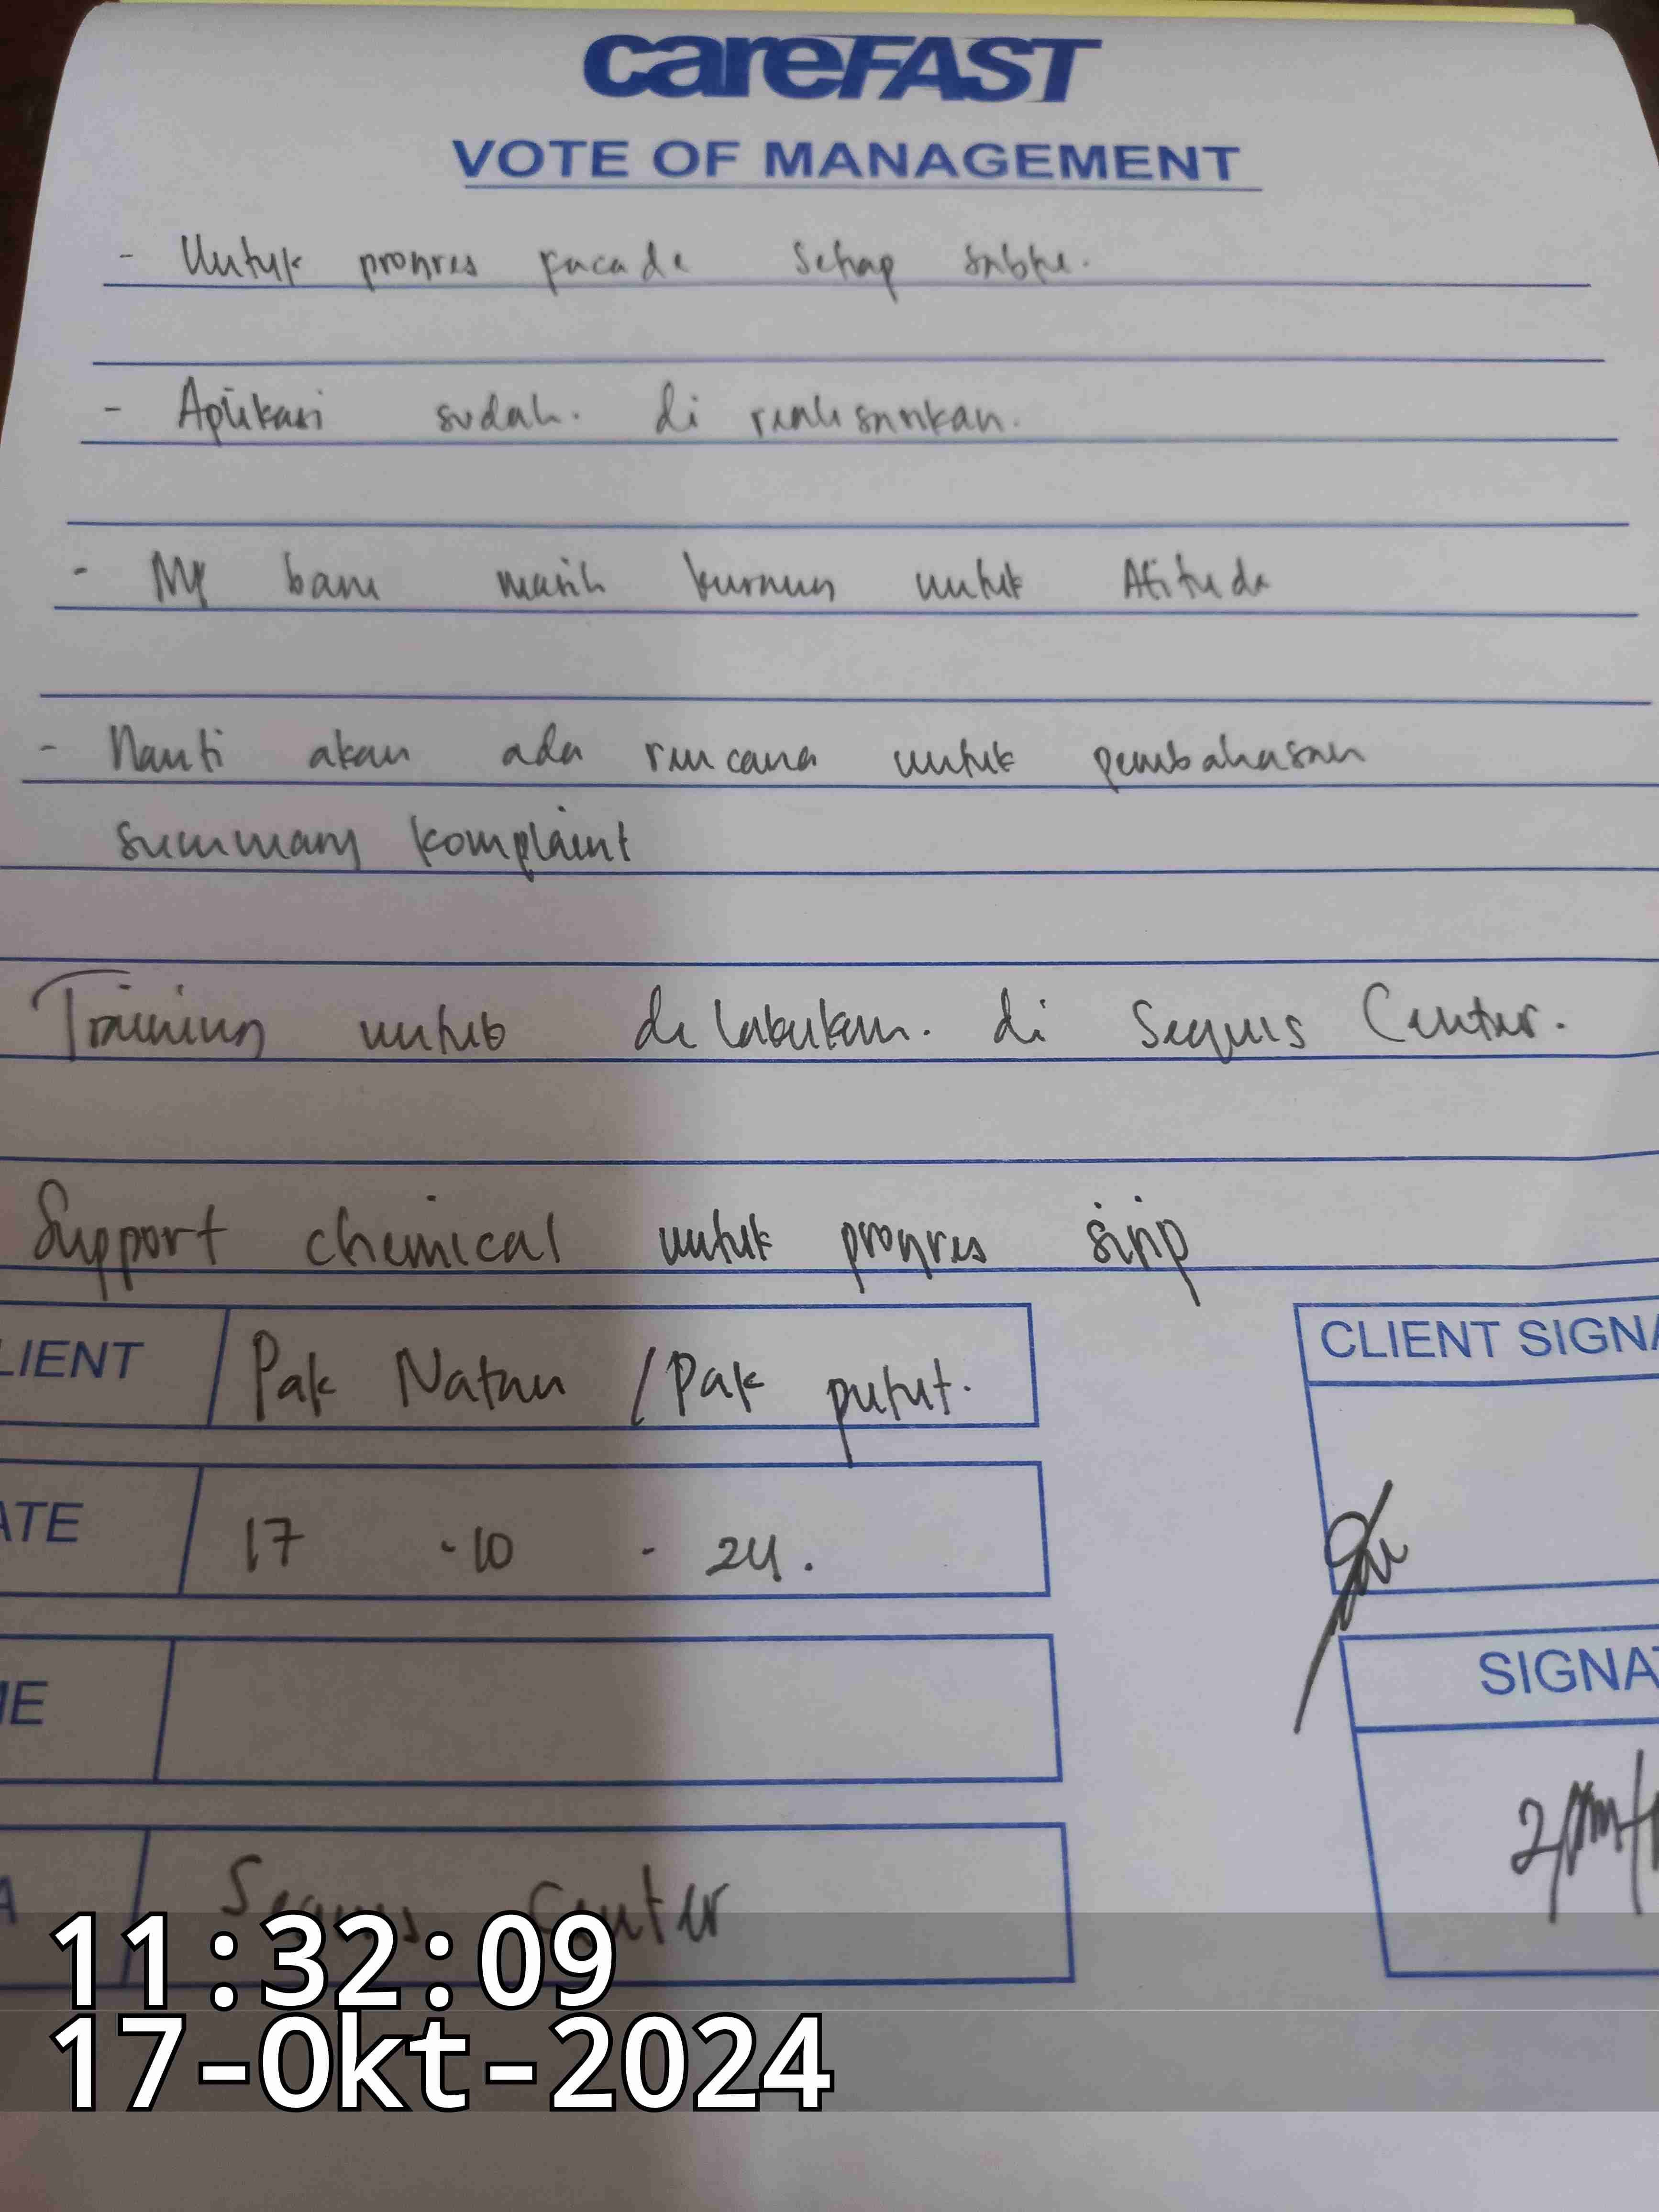 careFAST
VOTE OF MANAGEMENT
- Untuk progres facade Setiap sabtu.
- Aplikasi sudah. di realisasikan.
- baru masih kurang untuk Atitude
- Nanti akan ada rencana untuk pembahasan
summary komplaint
Training untuk di lakukan. di Sequis Center.
Support chemical untuk progres sirip
LIENT Pak Natan / Pak putut.
CLIENT SIGNA
ATE 17 - 10 - 24.
ME
SIGNA
A Sequis Center
11:32:09
17-Okt-2024